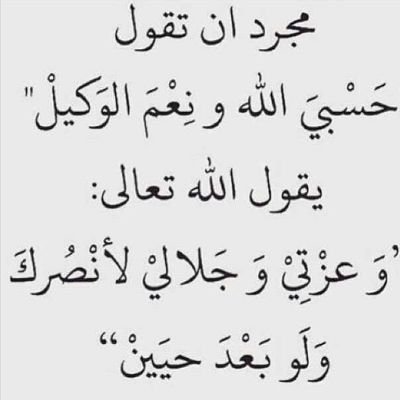 مجرد ان تقول
حَسْبيَ الله و نِعْمَ الوَكيلْ"
يقول الله تعالى:
’وَ عزْتِيْ وَ جَلاليْ لأنْصُركَ
وَلَو بَعْدَ حيَينْ“